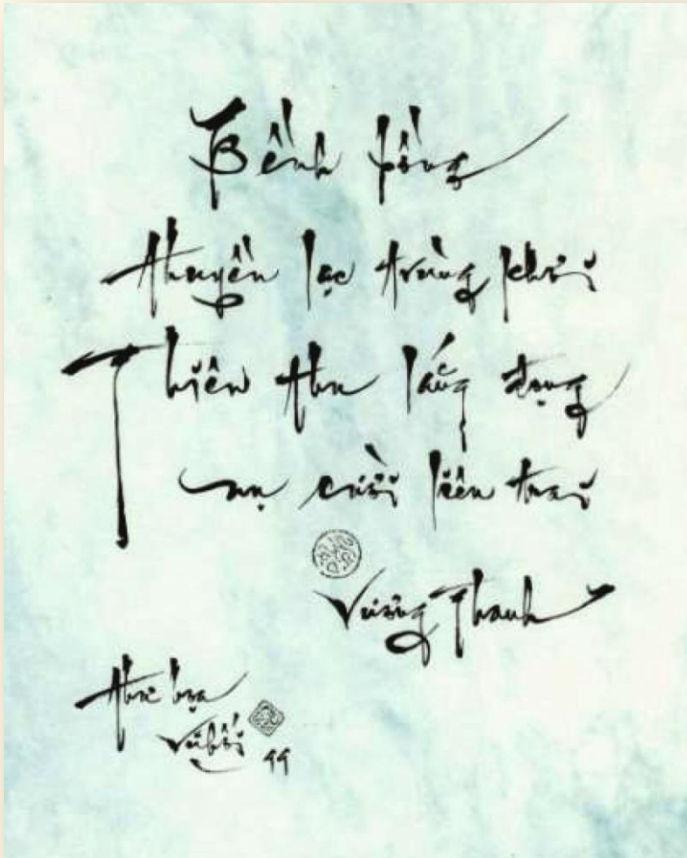 Bềnh bồng
thuyền lạc trùng khơi
Thiên thu lắng đọng
nụ cười liêu trai
Vương Thanh
thư họa
Vũ Hối
99